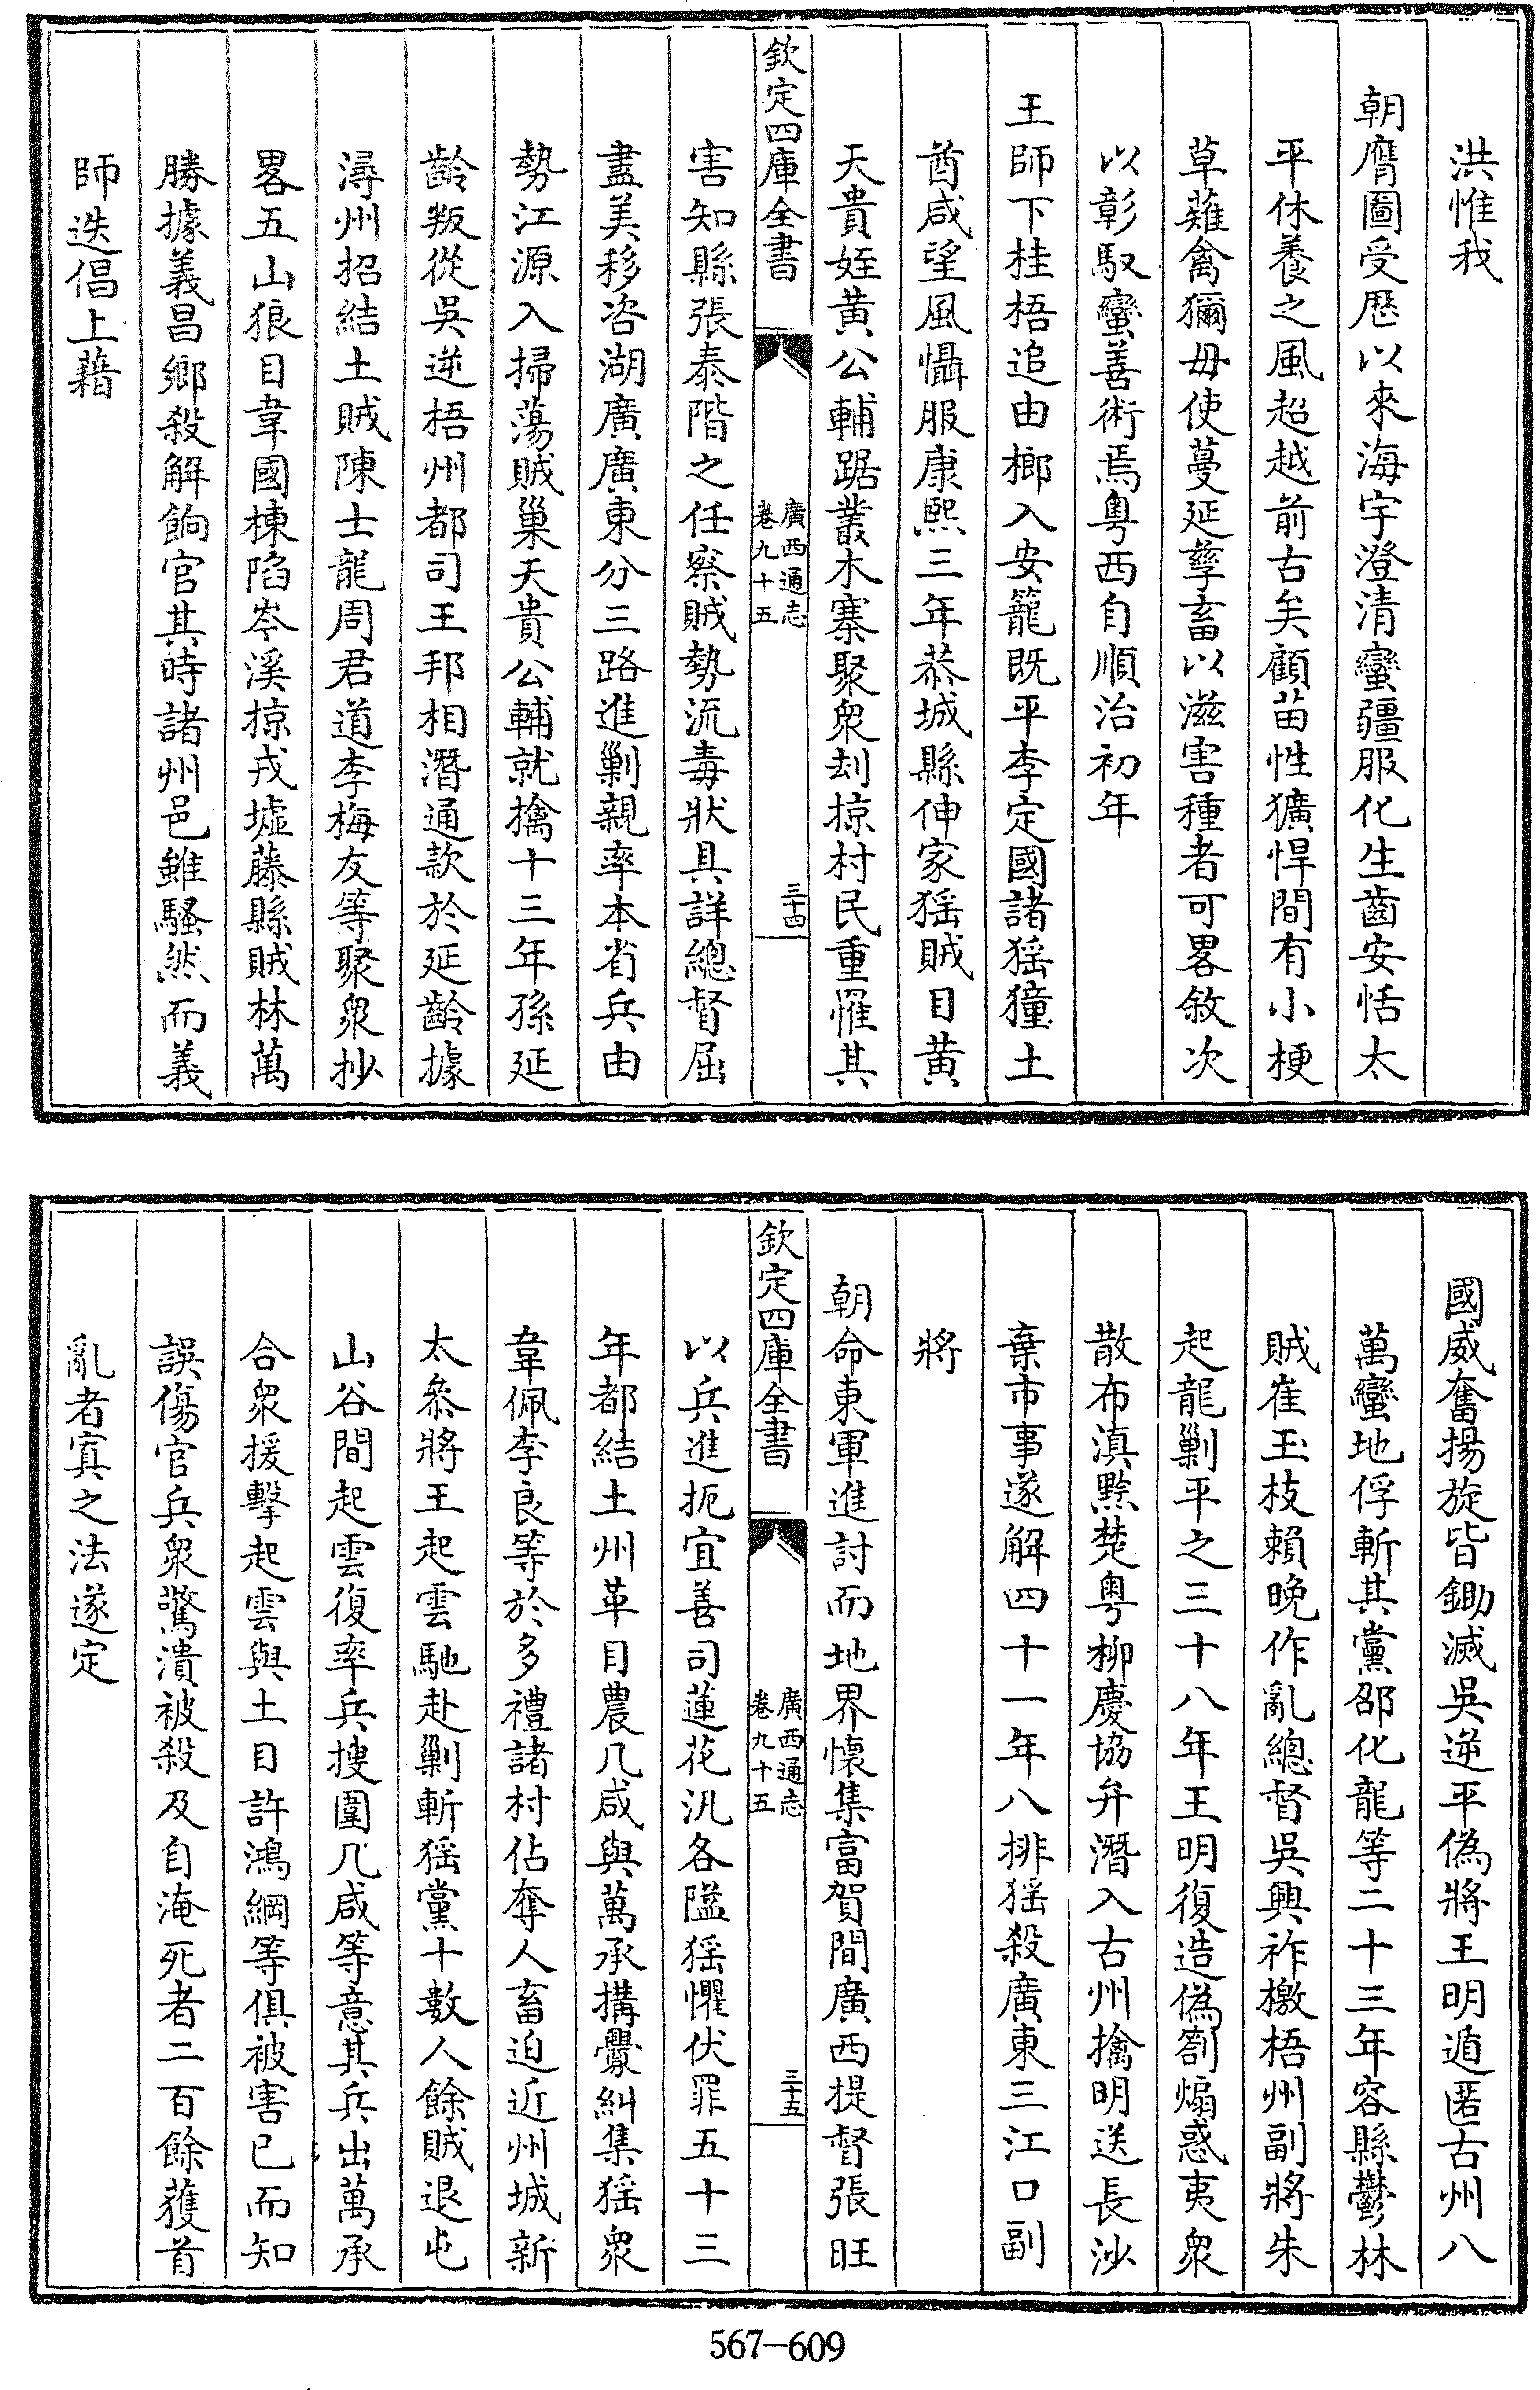 洪惟我
朝膺圖受歷以來海宇澄清蠻疆服化生齒安恬太
平休養之風超越前古矣顧苗性獷悍間有小梗
草薙禽獮毋使蔓延孽畜以滋害種者可畧敘次
以彰馭蠻善術焉粤西自順治初年
王師下桂梧追由榔入安籠既平李定國諸猺獞土
酋咸望風懾服康熙三年恭城縣伸家猺賊目黄
天貴姪黄公輔踞叢木寨聚衆刦掠村民重罹其
欽定四庫全書
廣西通志
卷九十五
三十四
害知縣張泰階之任察賊勢流毒狀具詳總督屈
盡美移咨湖廣廣東分三路進剿親率本省兵由
勢江源入掃蕩賊巢天貴公輔就擒十三年孫延
齡叛從吳逆梧州都司王邦相潛通款於延齡據
潯州招結土賊陳士龍周君道李梅友等聚衆抄
畧五山狼目韋國棟陷岑溪掠戎墟藤縣賊林萬
勝據義昌鄉殺解餉官其時諸州邑雖騷然而義
師迭倡上藉
國威奮揚旋皆鋤滅吳逆平偽將王明遁匿古州八
萬蠻地俘斬其黨邵化龍等二十三年容縣鬱林
賊崔玉枝賴晚作亂總督吳興祚檄梧州副將朱
起龍剿平之三十八年王明復造偽劄煽惑夷衆
散布滇黔楚粤柳慶協弁潛入古州擒明送長沙
棄市事遂解四十一年八排猺殺廣東三江口副
將
朝命東軍進討而地界懷集富賀間廣西提督張旺
欽定四庫全書
廣西通志
卷九十五
三十五
以兵進扼宜善司蓮花汛各隘猺懼伏罪五十三
年都結土州革目農几咸與萬承搆釁糾集猺衆
韋佩李良等於多禮諸村佔奪人畜迫近州城新
太叅將王起雲馳赴剿斬猺黨十數人餘賊退屯
山谷間起雲復率兵搜圍几咸等意其兵出萬承
合衆援擊起雲與土目許鴻綱等俱被害已而知
誤傷官兵衆驚潰被殺及自淹死者二百餘獲首
亂者寘之法遂定
567-609